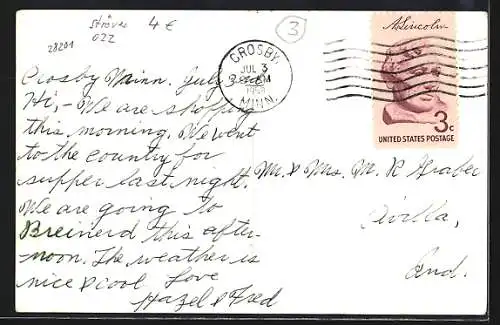 ströver 4 €
28201
022
3
CROSBY,
JUL 3
3 PM
1959
MINN.
A. Lincoln
3c
UNITED STATES POSTAGE
Crosby Minn. July
Hi, - We are shopping
this morning. We went
to the country for
supper last night.
We are going to
Breinerd this after-
noon. The weather is
nice & cool. Love
Hazel & Fred
Mr. & Mrs. M. R. Graber
Avilla,
Ind.